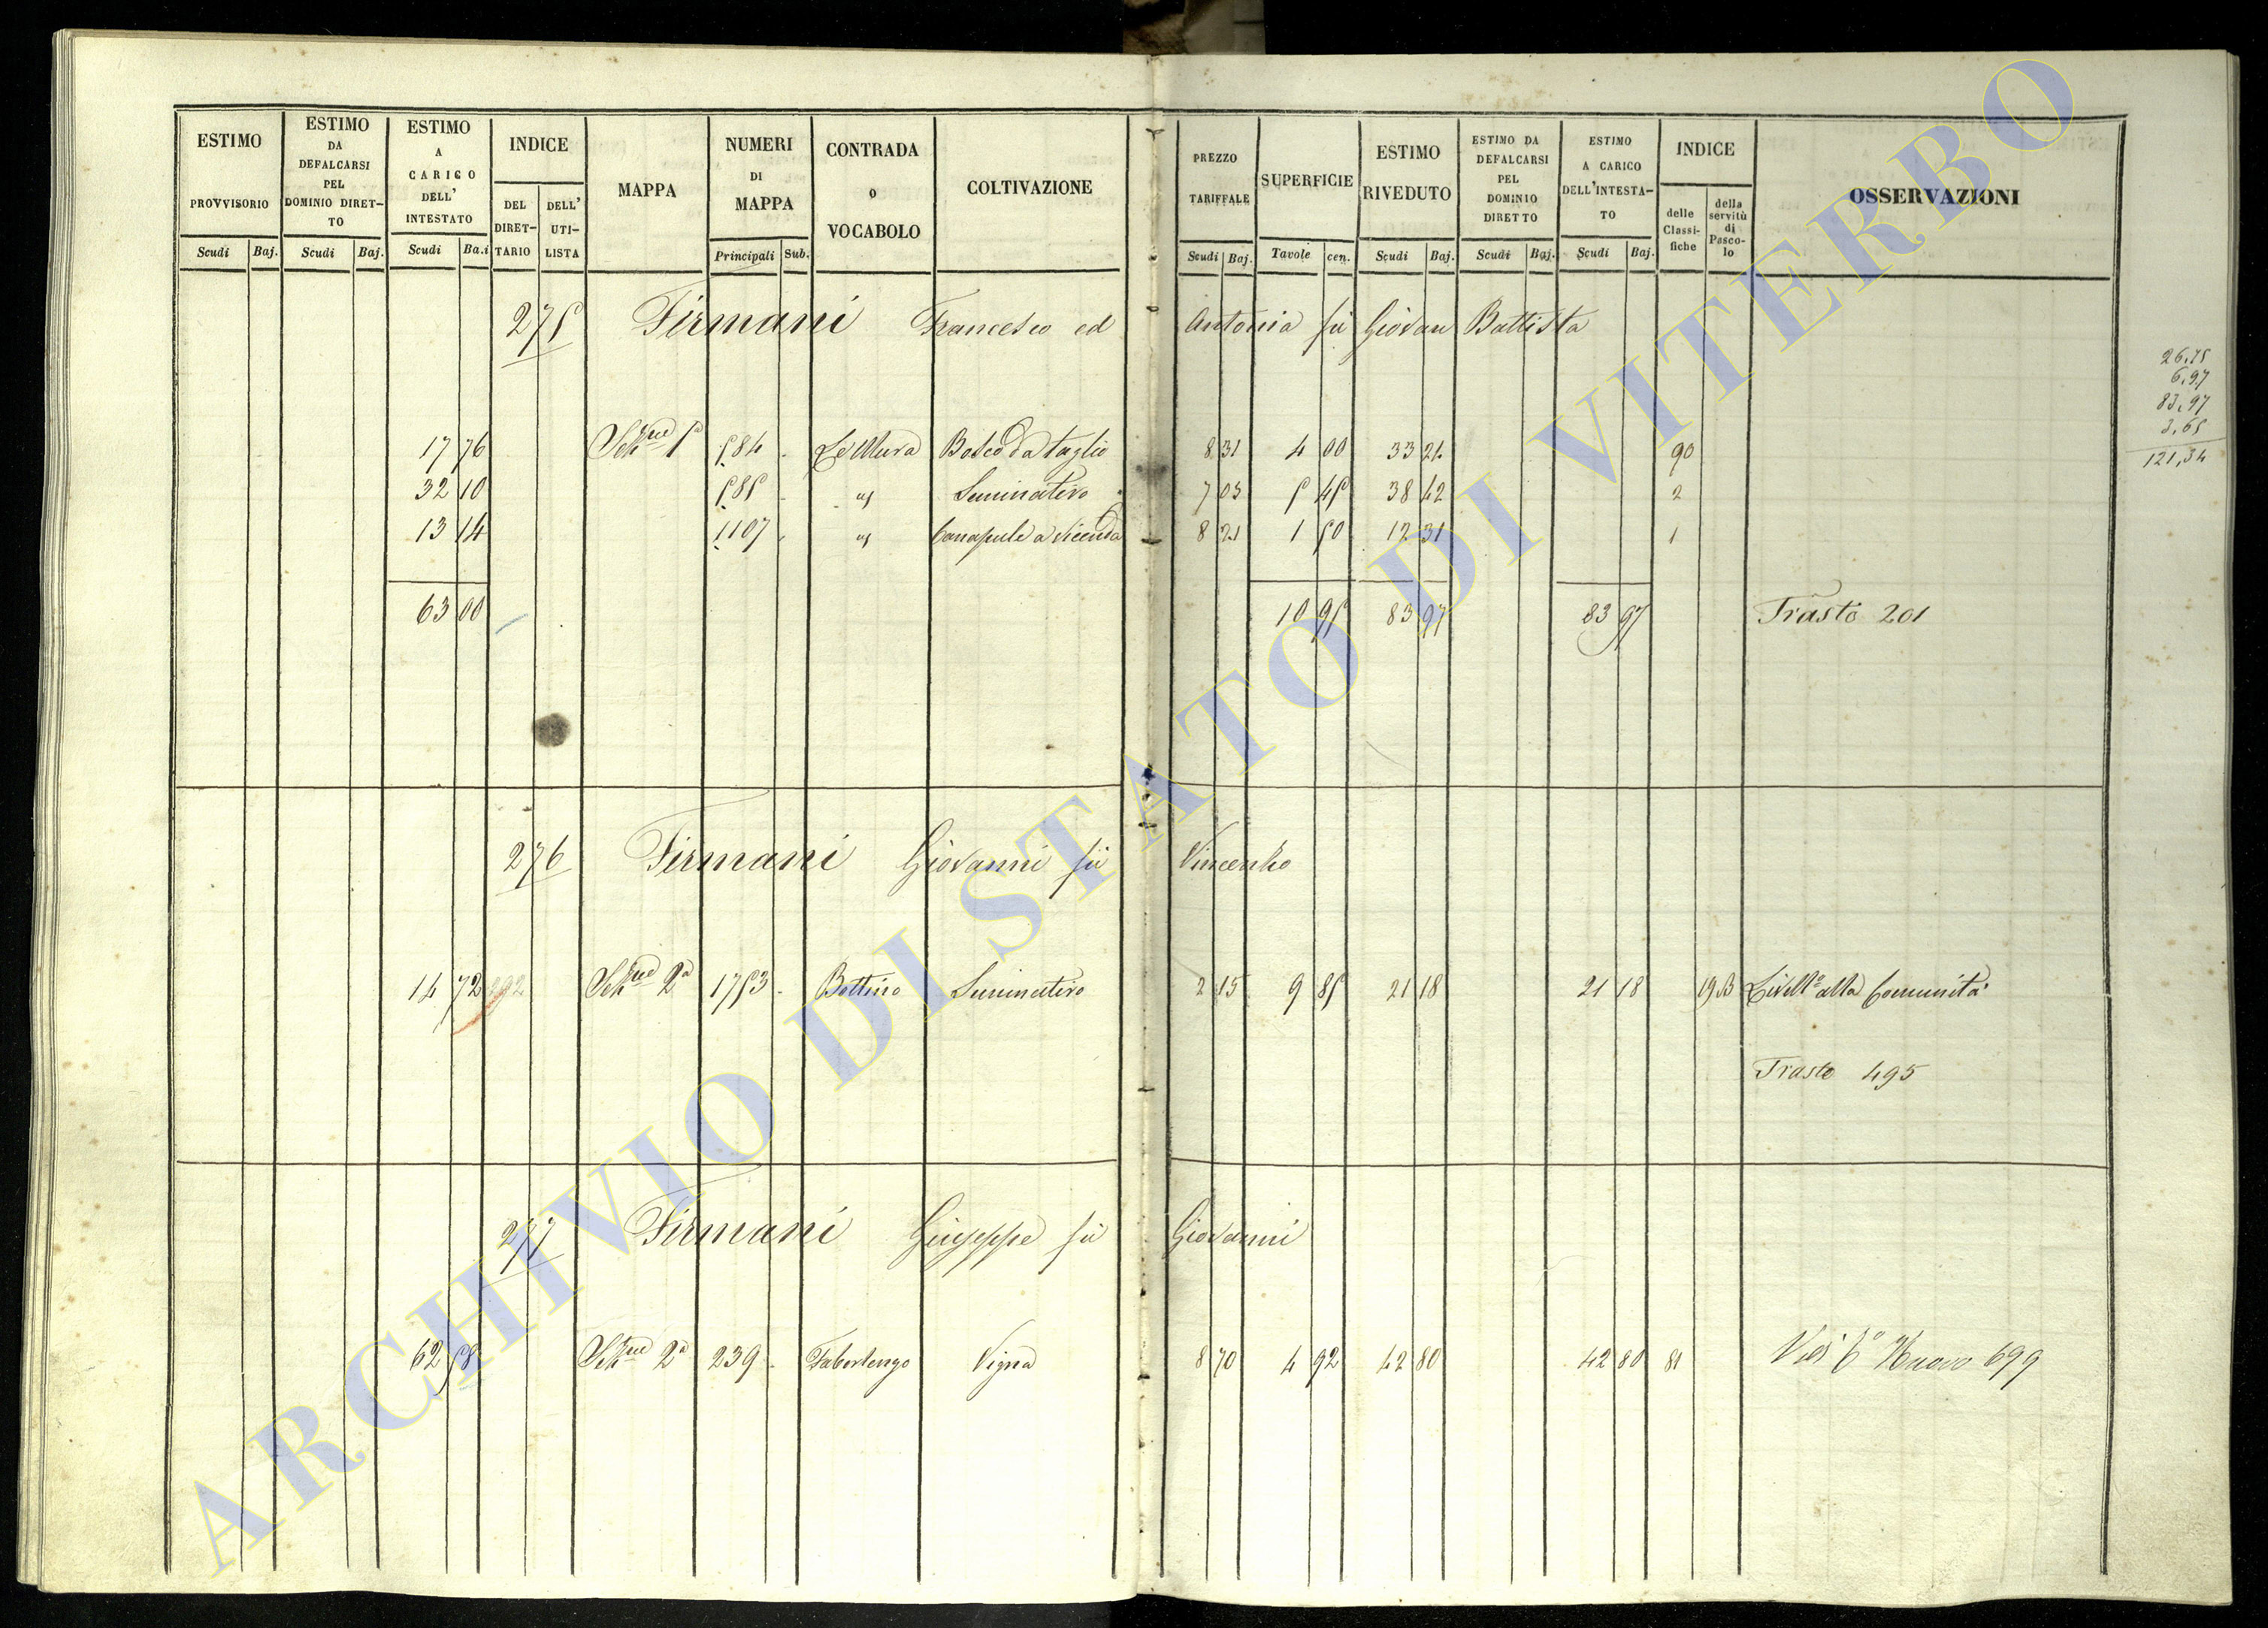 ESTIMO PROVVISORIO
ESTIMO DA DEFALCARSI PEL DOMINIO DIRET-TO
ESTIMO A CARICO DELL' INTESTATO
INDICE
DEL DIRET-TARIO
DELL' UTI-LISTA
MAPPA
NUMERI DI MAPPA
CONTRADA O VOCABOLO
COLTIVAZIONE
PREZZO TARIFFALE
SUPERFICIE
ESTIMO RIVEDUTO
ESTIMO DA DEFALCARSI PEL DOMINIO DIRETTO
ESTIMO A CARICO DELL'INTESTA-TO
INDICE
delle Classi-fiche
della servitù di Pasco-lo
OSSERVAZIONI
Scudi Baj. Scudi Baj. Scudi Ba.i Principali Sub. Scudi Baj. Tavole cen. Scudi Baj. Scudi Baj. Scudi Baj.
275 Firmani Francesco ed Antonia fù Giovan Battista
26,75
6,97
83,97
3,65
121,34
17 76 Sez.ne 1a 584 Le Mura Bosco da taglio 8 31 4 00 33 24 90
32 10 585 " Seminativo 7 05 5 45 38 42 2
13 14 1107 " Canapule a vicenda 8 21 1 50 12 31 1
63 00 10 95 83 97 83 97 Trasto 201
276 Firmani Giovanni fù Vincenzo
14 72 292 Sez.ne 2a 1753 Bottino Seminativo 2 15 9 85 21 18 21 18 19 B Livell.o alla Comunità
Trasto 495
277 Firmani Giuseppe fù Giovanni
62 58 Sez.ne 2a 239 Faborlengo Vigna 8 70 4 92 42 80 42 80 81 Vedi C.o Nuovo 699
ARCHIVIO DI STATO DI VITERBO